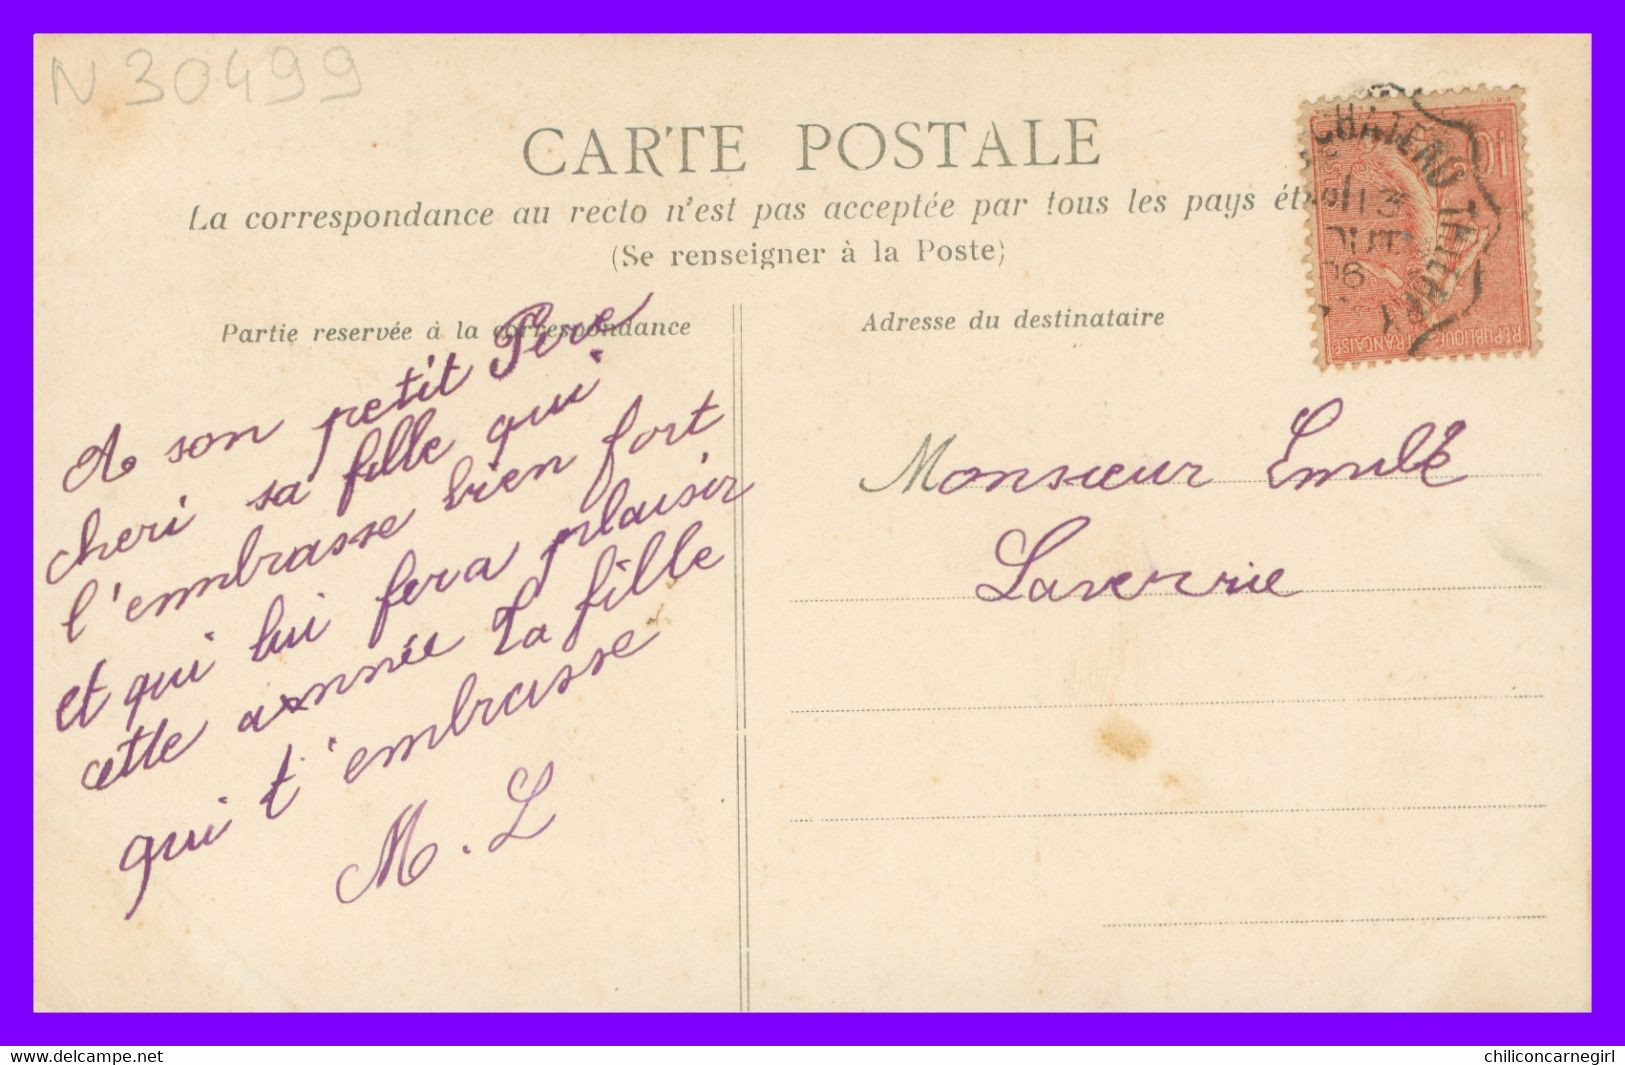 N 30499
CARTE POSTALE
La correspondance au recto n'est pas acceptée par tous les pays
(Se renseigner à la Poste)
Partie reservée à la correspondance
A son petit Pere
cheri sa fille qui
l'embrasse bien fort
et qui lui fera plaisir
cette année Ta fille
qui t'embrasse
M. L
Adresse du destinataire
Monsieur Emile
Laverrie
10
CHATEAU THIERRY
13
06
REPUBLIQUE FRANÇAISE
delcampe.net
chiliconcarnegirl